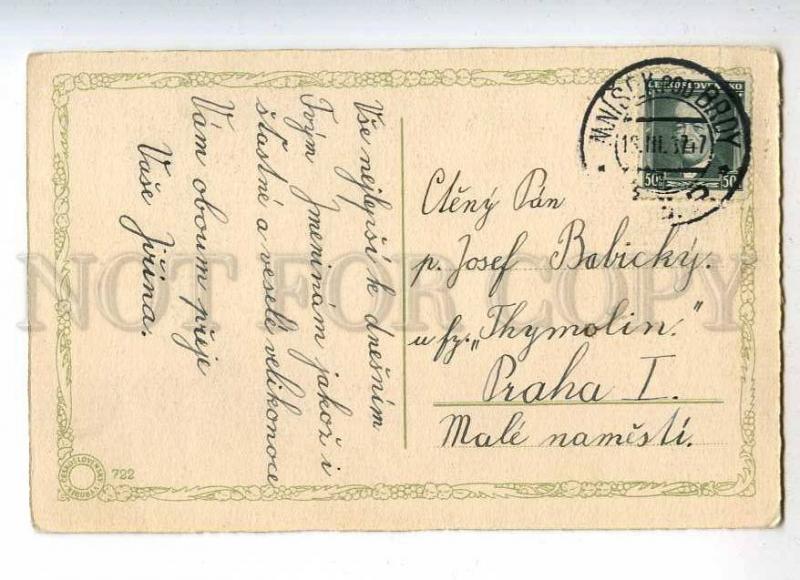 Vše nejlepší k dnešním
Tvým Jmeninám jakož i
šťastné a veselé velikonoce
Vám oboum přeje
Vaše Jiřina.
MNÍŠEK POD BRDY
ČESKOSLOVENSKO
50 50
Ctěný Pán
p. Josef Babický.
u fy. „Thymolin."
Praha I.
Malé naměstí.
722
NOT FOR COPY